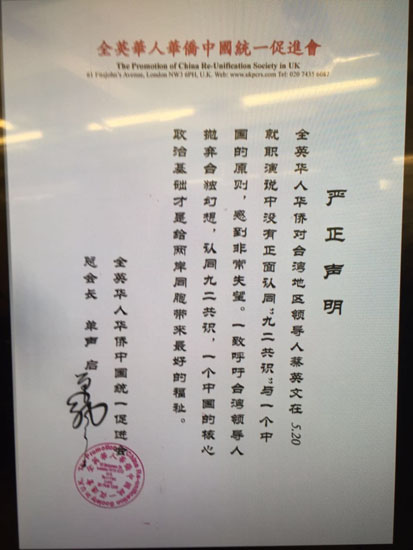 全英華人華僑中國統一促進會
The Promotion of China Re-Unification Society in UK
61 Fitzjohn's Avenue, London NW3 6PH, U.K. Web: www.ukpcrs.com Tel: 020 7435
严正声明
全英华人华侨对台湾地区领导人蔡英文在 5.20
就职演说中没有正面认同“九二共识”与一个中
国的原则，感到非常失望。一致呼吁台湾领导人
抛弃台独幻想，认同九二共识，一个中国的核心
政治基础才是给两岸同胞带来最好的福祉。
全英华人华侨中國統一促進會
总会长 单声 启